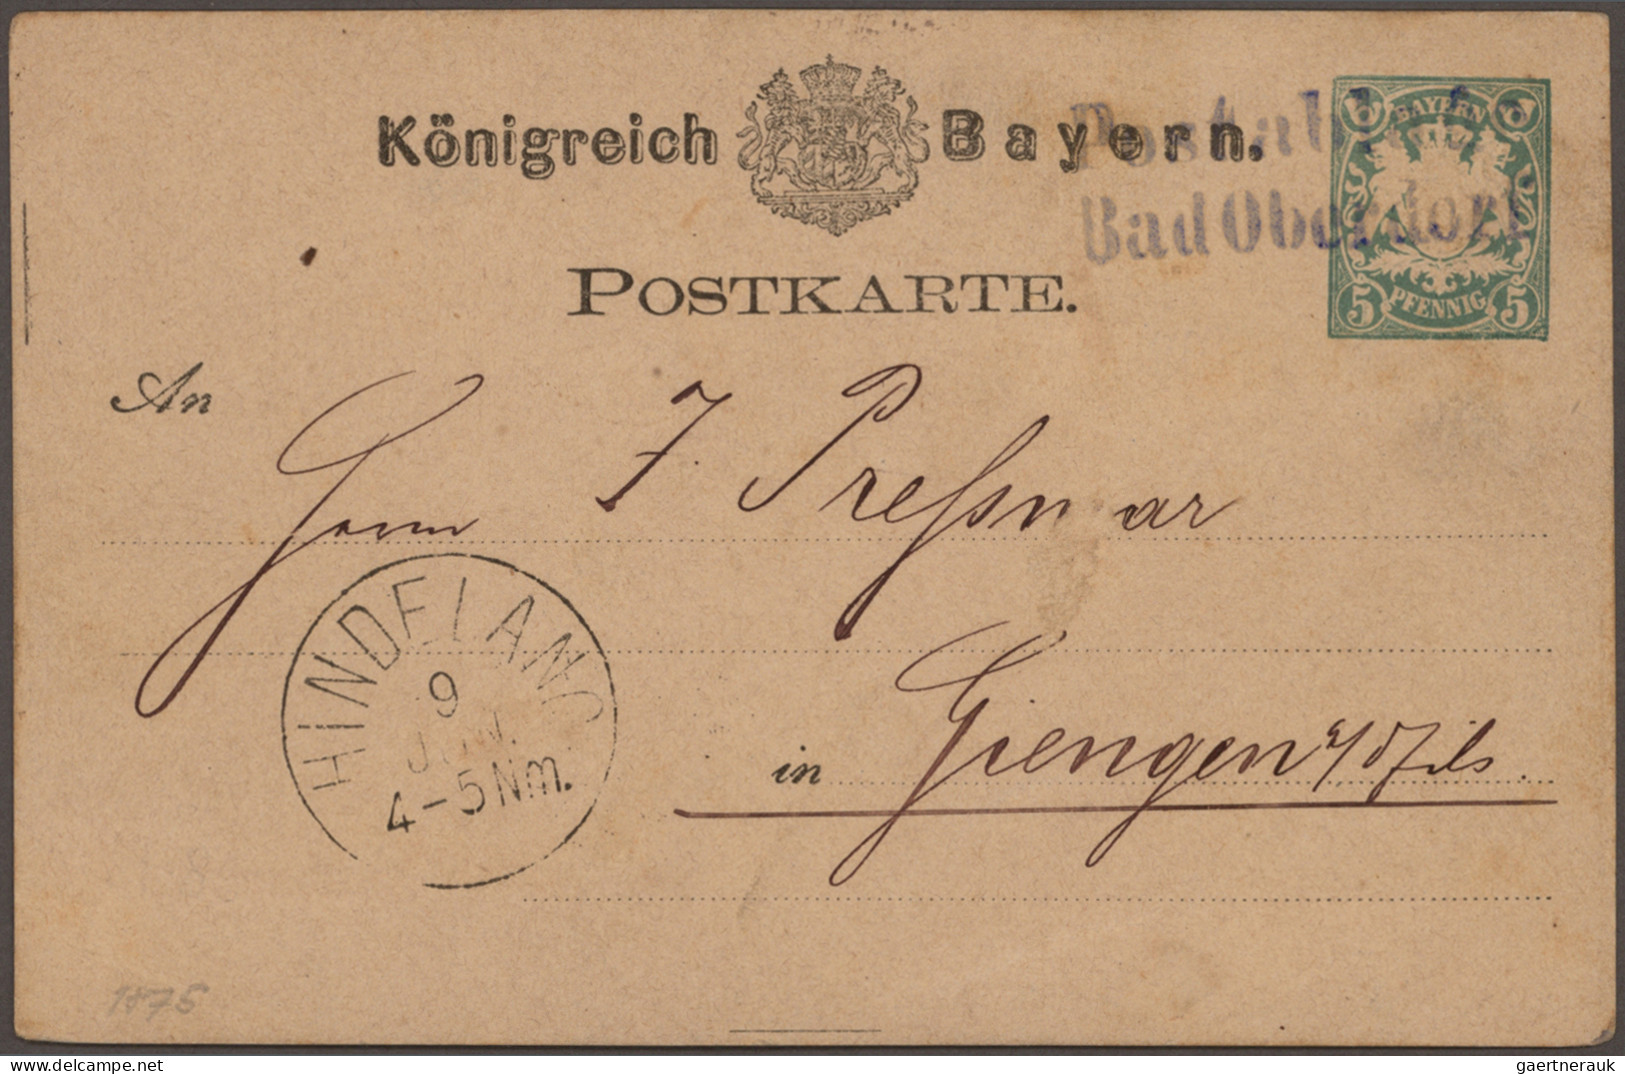 Königreich Bayern.
BAYERN
5 PFENNIG 5
Postabl
Bad Oberdorf
POSTKARTE.
An
Herrn J. Preßmar
HINDELANG
9
JUN.
4-5 Nm.
in Giengen a/d Fils.
1875
delcampe.net
gaertnerauk